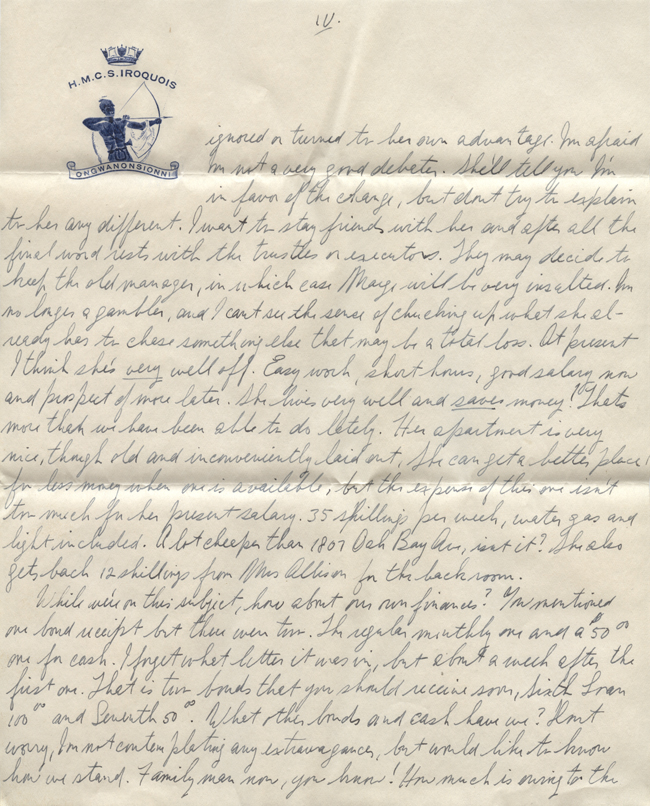 IV.
H.M.C.S. IROQUOIS
ONGWANONSIONNI
ignored or turned to her own advantage. I'm afraid
I'm not a very good debater. She'll tell you I'm
in favor of the change, but don't try to explain
to her any different. I want to stay friends with her and after all the
final word rests with the trustees or executors. They may decide to
keep the old manager, in which case Marge will be very insulted. I'm
no longer a gambler, and I can't see the sense of chucking up what she al-
ready has to chase something else that may be a total loss. At present
I think she's very well off. Easy work, short hours, good salary now
and prospect of more later. She lives very well and saves money! That's
more than we have been able to do lately. Her apartment is very
nice, though old and inconveniently laid out. She can get a better place
for less money when one is available, but the expense of this one isn't
too much for her present salary. 35 shillings per week, water gas and
light included. A lot cheaper than 1807 Oak Bay Ave, isn't it? She also
gets back 12 shillings from Mrs Allison for the back room.
While we're on this subject, how about our own finances? You mentioned
one bond receipt but there were two. The regular monthly one and a $50.00
one for cash. I forget what letter it was in, but about a week after the
first one. That is two bonds that you should receive soon, Sixth Loan
100.00 and Seventh 50.00. What other bonds and cash have we? Don't
worry, I'm not contemplating any extravagances, but would like to know
how we stand. Family man now, you know! How much is owing to the